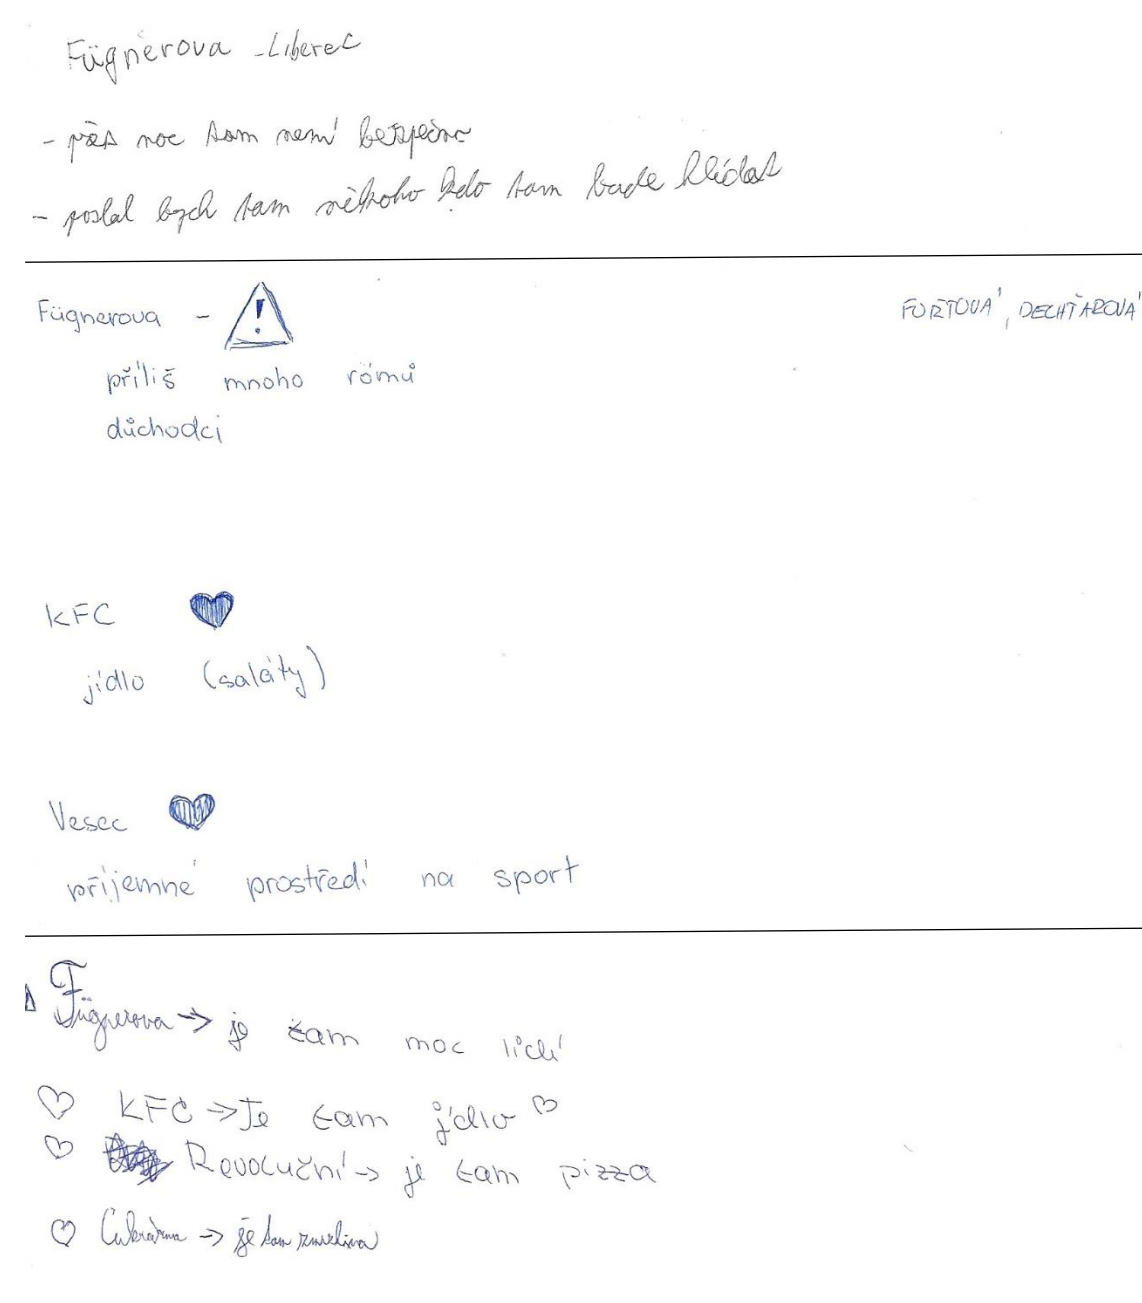 Fügnerova - Liberec
- přes noc tam není bezpečno
- poslal bych tam někoho kdo tam bude hlídat
Fügnerova -
!
FORTOVÁ, DECHŤAROVÁ
příliš mnoho rómů
důchodci
KFC
jídlo (saláty)
Vesec
příjemné prostředí na sport
Fügnerova → je tam moc lidí
KFC → Je tam jídlo
Revoluční → je tam pizza
Cukrárna → je tam zmrzlina